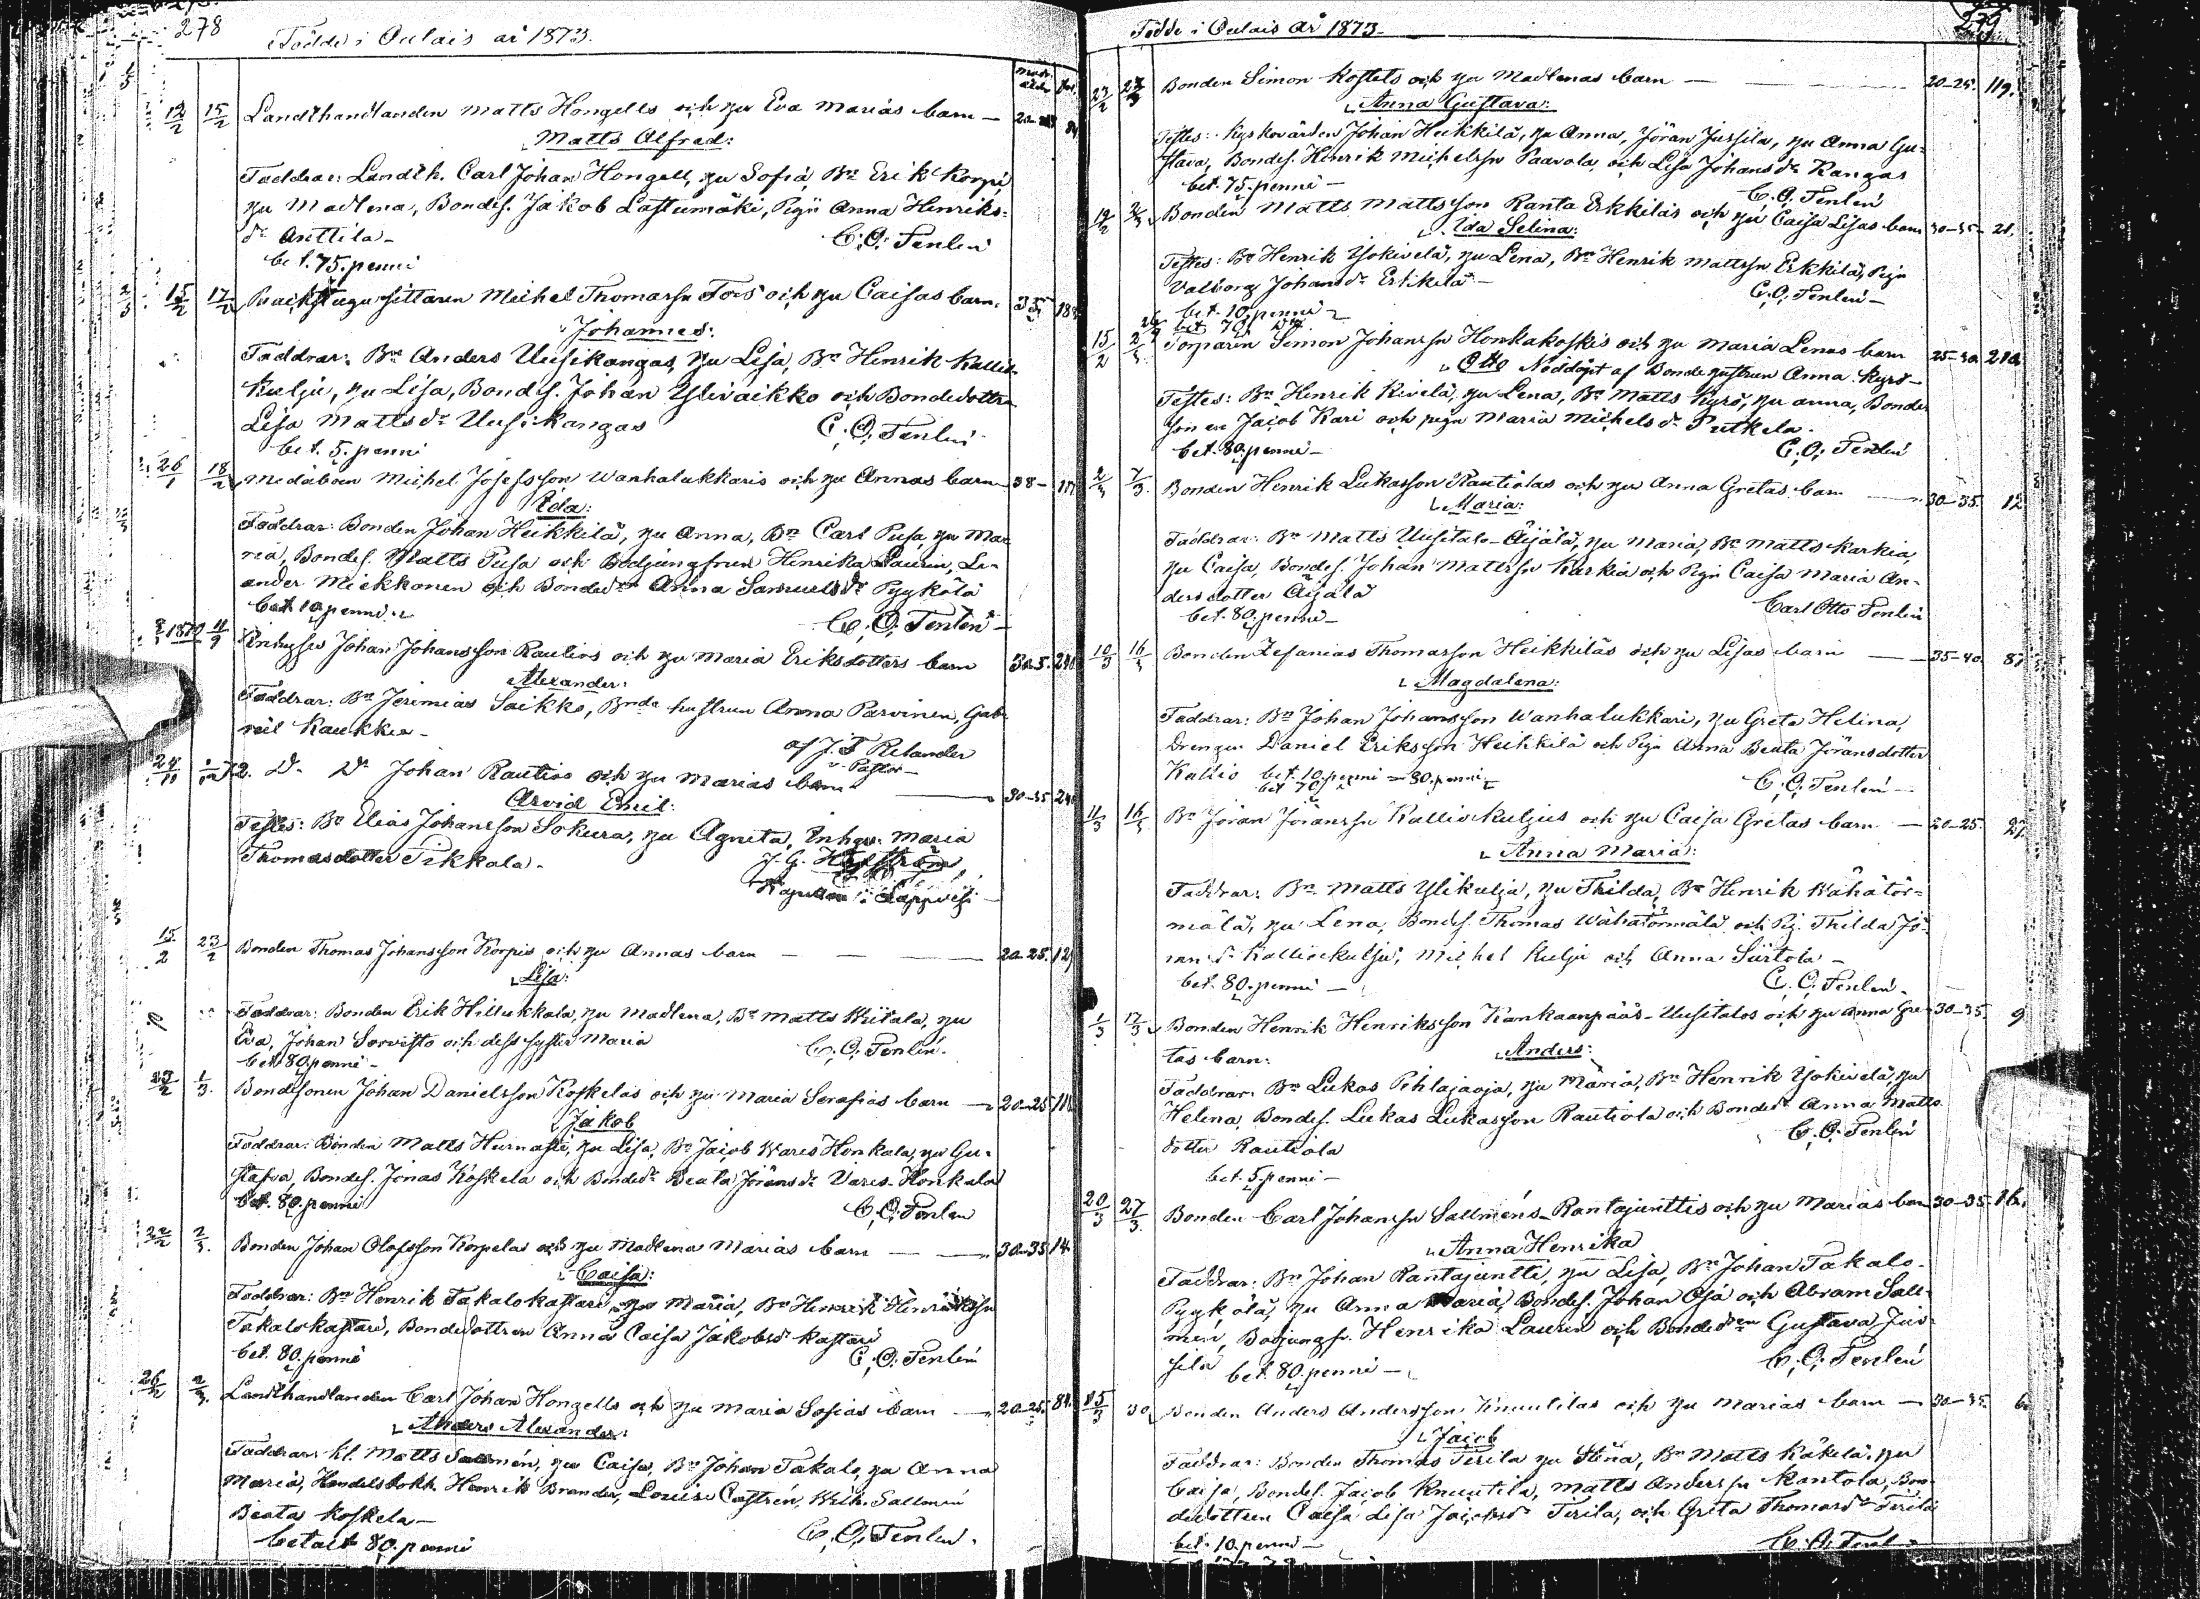 278
Födde i Oulais år 1873.
12/2 15/2 Landthandlanden Matts Hongells och hu Eva Marias barn —
Matts Alfred:
Faddrar: Landth. Carl Johan Hongell, hu Sofia, Bn Erik Korpi,
hu Madlena, Bondes. Jakob Lastumäki, Pign Anna Henriks-
dr Anttila —
C. O. Tenlén
bet. 75. penni
15/2 17/2 Backstugusittaren Michel Thomassn Fors och hu Caisas barn. 35
Johannes:
Faddrar: Bn Anders Uusikangas, hu Lisa, Bn Henrik Kallio-
kulju, hu Lisa, Bondes. Johan Ylivaikko och Bondedottren
Lisa Mattsdr Uusikangas C. O. Tenlén
bet. 5. penni
26/1 18/2 Michel Josefsson Wanhalukkaris och hu Annas barn 38 —
Ida:
Faddrar: Bonden Johan Heikkilä, hu Anna, Bn Carl Pusa, hu Ma-
ria, Bondes. Matts Pusa och Henrika Laurin, Le-
ander Miekkonen och Bondedr Anna Samuelsdr Pyykölä
bet. 10 penni
C. O. Tenlén
Inhyses Johan Johansson Rautios och hu Maria Eriksdotters barn
Alexander:
Faddrar: Bn Jeremias Saikko, hustrun Anna Parvinen, Gab-
riel Kaukkia —
af J. F. Relander
v. Pastor —
Do Do Johan Rautios och hu Marias barn — 30-35
Arvid Emil:
Testes: Bn Elias Johansson Sokura, hu Agneta, Inhys. Maria
Thomasdotter Tikkala.
J. G.
15/2 23/2 Bonden Thomas Johansson Korpis och hu Annas barn — 20-25.
Lisa:
Faddrar: Bonden Erik Hillukkala, hu Madlena, Bn Matts Wiitala, hu
Eva, Johan Sorvisto och dess syster Maria C. O. Tenlén.
bet. 80. penni —
1/3. Bondesonen Johan Danielsson Koskelas och hu Maria Serafias barn — 20-25
Jakob
Faddrar: Bonden Matts Hurnasti, hu Lisa, Bn Jacob Wares Honkala, hu Gu-
stafva, Bondes. Jonas Koskela och Bondedr Beata Jöransdr Vares-Honkala
bet. 80. penni C. O. Tenlén
22/2 2/3. Bonden Johan Olofsson Korpelas och hu Madlena Marias barn — 30-35 14.
Caisa:
Faddrar: Bn Henrik Takalokastari, hu Maria, Bn Henrik Henrikssn
Takalokastari, Bondedottren Anna Caisa Jakobsdr Kastari
bet. 80. penni C. O. Tenlén
26/2 2/3. Landthandlanden Carl Johan Hongells och hu Maria Sofias barn — 20-25. 84.
Anders Alexander:
Faddrar: kl. Matts Sallmén, hu Caisa, Bn Johan Takalo, hu Anna
Maria, Handelsbokh. Henrik Brander, Louise Castrén, Wilh. Sallmén
Beata Koskela —
betalt 80. penni C. O. Tenlén.
279
Födde i Oulais år 1873.
23/2 Bonden Simon Kostets och hu Madlenas barn — 20-25. 119.
Anna Gustava:
Testes: Kyrkovärden Johan Heikkilä, hu Anna, Jöran Jussila, hu Anna Gu-
stava, Bondes. Henrik Michelssn Paavola, och Lisa Johansdr Kangas
bet. 75. penni — C. O. Tenlén
19/2 Bonden Matts Mattsson Ranta Erkkiläs och hu Caisa Lisas barn 30-35 21.
Ida Selina:
Testes: Bn Henrik Yokivelä, hu Lena, Bn Henrik Mattssn Erkkilä, Pign
Valborg Johansdr Erkkilä — C. O. Tenlén —
bet. 10. penni
15/2 Torparen Simon Johanssn Honkakoskis och hu Maria Lenas barn 25-30
Otto Nöddöpt af Bondehustrun Anna Kyrö —
Testes: Bn Henrik Kivelä, hu Lena, Bn Matts Kyrö, hu Anna, Bonde-
sonen Jacob Kari och pign Maria Michelsdr Putkela.
bet. 80. penni — C. O. Tenlén
2/3 7/3. Bonden Henrik Lukasson Rautiolas och hu Anna Gretas barn — 30-35. 12
Maria:
Faddrar: Bn Matts Uusitalo-Äijälä, hu Maria, Bn Matts Karkia,
hu Caisa, Bondes. Johan Mattssn Karkia och Pign Caisa Maria An-
dersdotter Äijälä Carl Otto Tenlén
bet. 80. penni —
10/3 16/3 Bonden Zefanias Thomasson Heikkiläs och hu Lisas barn — 35-40.
Magdalena:
Faddrar: Bn Johan Johansson Wanhalukkari, hu Greta Helina,
Drengen Daniel Eriksson Heikkilä och Pign Anna Beata Jöransdotter
Kallio bet. 10. penni = 80. penni C. O. Tenlén —
11/3 16/3 Bn Jöran Jöranssn Kalliokuljus och hu Caisa Gretas barn — 20-25.
Anna Maria:
Faddrar: Bn Matts Ylikulja, hu Thilda, Bn Henrik Wähätör-
mälä, hu Lena, Bondes. Thomas Wähätörmälä och Pig. Thilda Jö-
ransdr Kalliokulju, Michel Kulju och Anna Siirtola —
bet. 80. penni — C. O. Tenlén.
1/3 17/3 Bonden Henrik Henriksson Kankaanpääs-Uusitalos och hu Anna Gre- 30-35 9
tas barn: Anders:
Faddrar: Bn Lukas Pihlajaoja, hu Maria, Bn Henrik Yokivelä, hu
Helena, Bondes. Lukas Lukasson Rautiola och Bondedr Anna Matts
dotter Rautiola C. O. Tenlén
bet. 5. penni —
20/3 27/3. Bonden Carl Johanssn Sallméns-Rantajunttis och hu Marias barn 30-35 16.
Anna Henrika
Faddrar: Bn Johan Rantajuntti, hu Lisa, Bn Johan Takalo-
Pyykölä, hu Anna Maria, Bondes. Johan Oja och Abram Sall-
mén, Henrika Laurin och Gustava Jus-
sila bet. 80. penni — C. O. Tenlén
30 Bonden Anders Andersson Knuutilas och hu Marias barn — 30-35.
Jacob
Faddrar: Bonden Thomas Tirila hu Stina, Bn Matts Käkelä, hu
Caisa, Bondes. Jacob Knuutila, Matts Anderssn Kantola, Bon-
dedottren Caisa Lisa Jacobsdr Tirila, och Greta Thomasdr Tirila
bet. 10. penni —